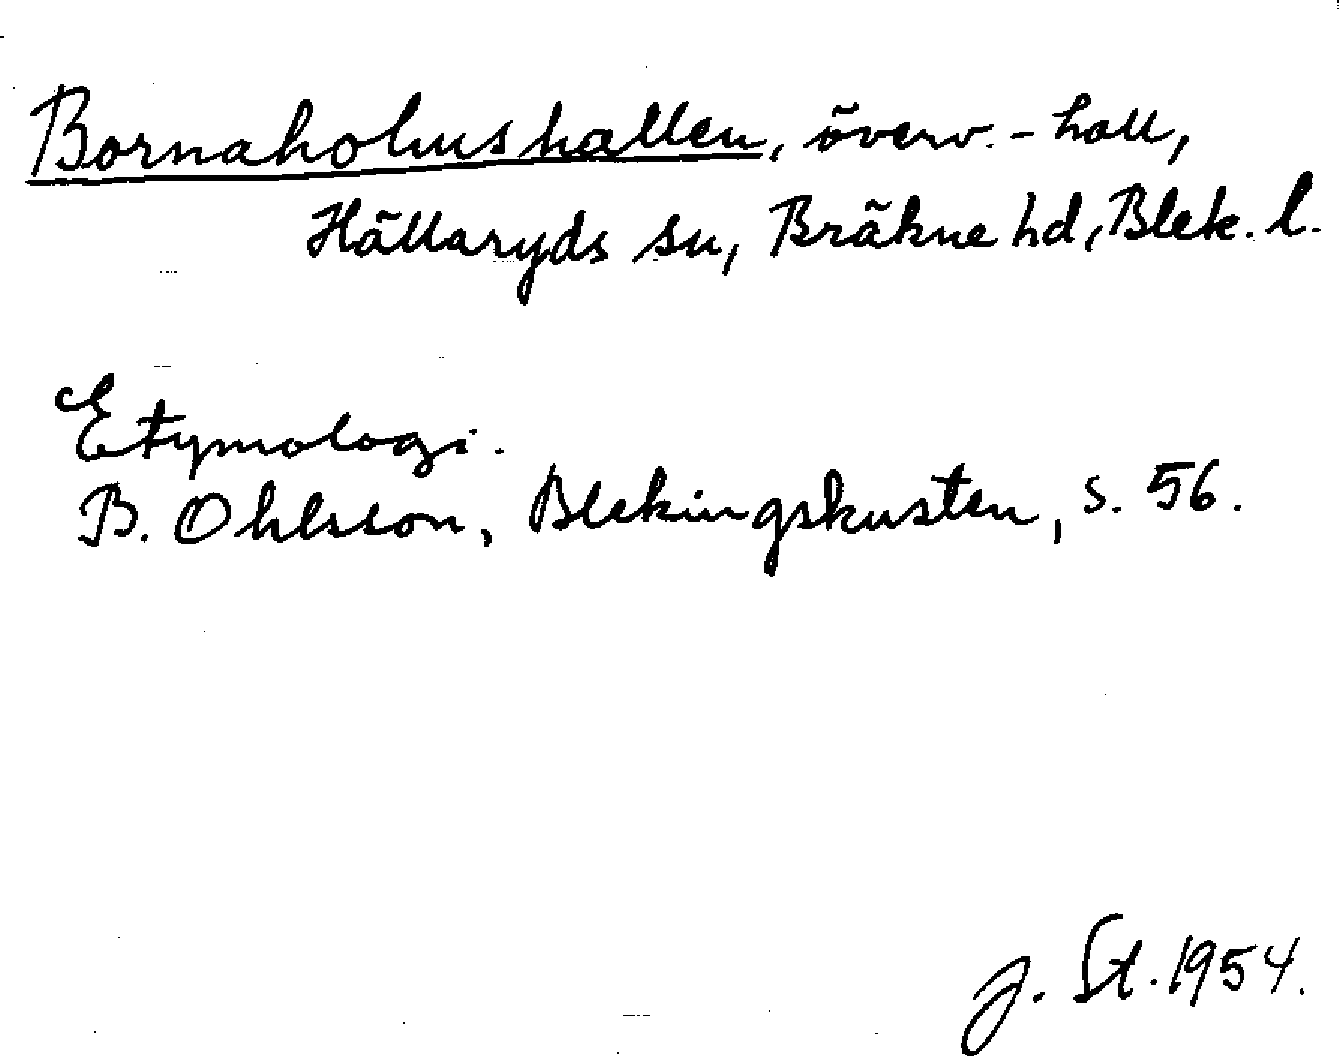 Bornaholmshallen, överv. - hall,
Hällaryds sn, Bräkne hd, Blek. l.
Etymologi.
B. Ohlsson, Blekingskusten, s. 56.
J. St. 1954.